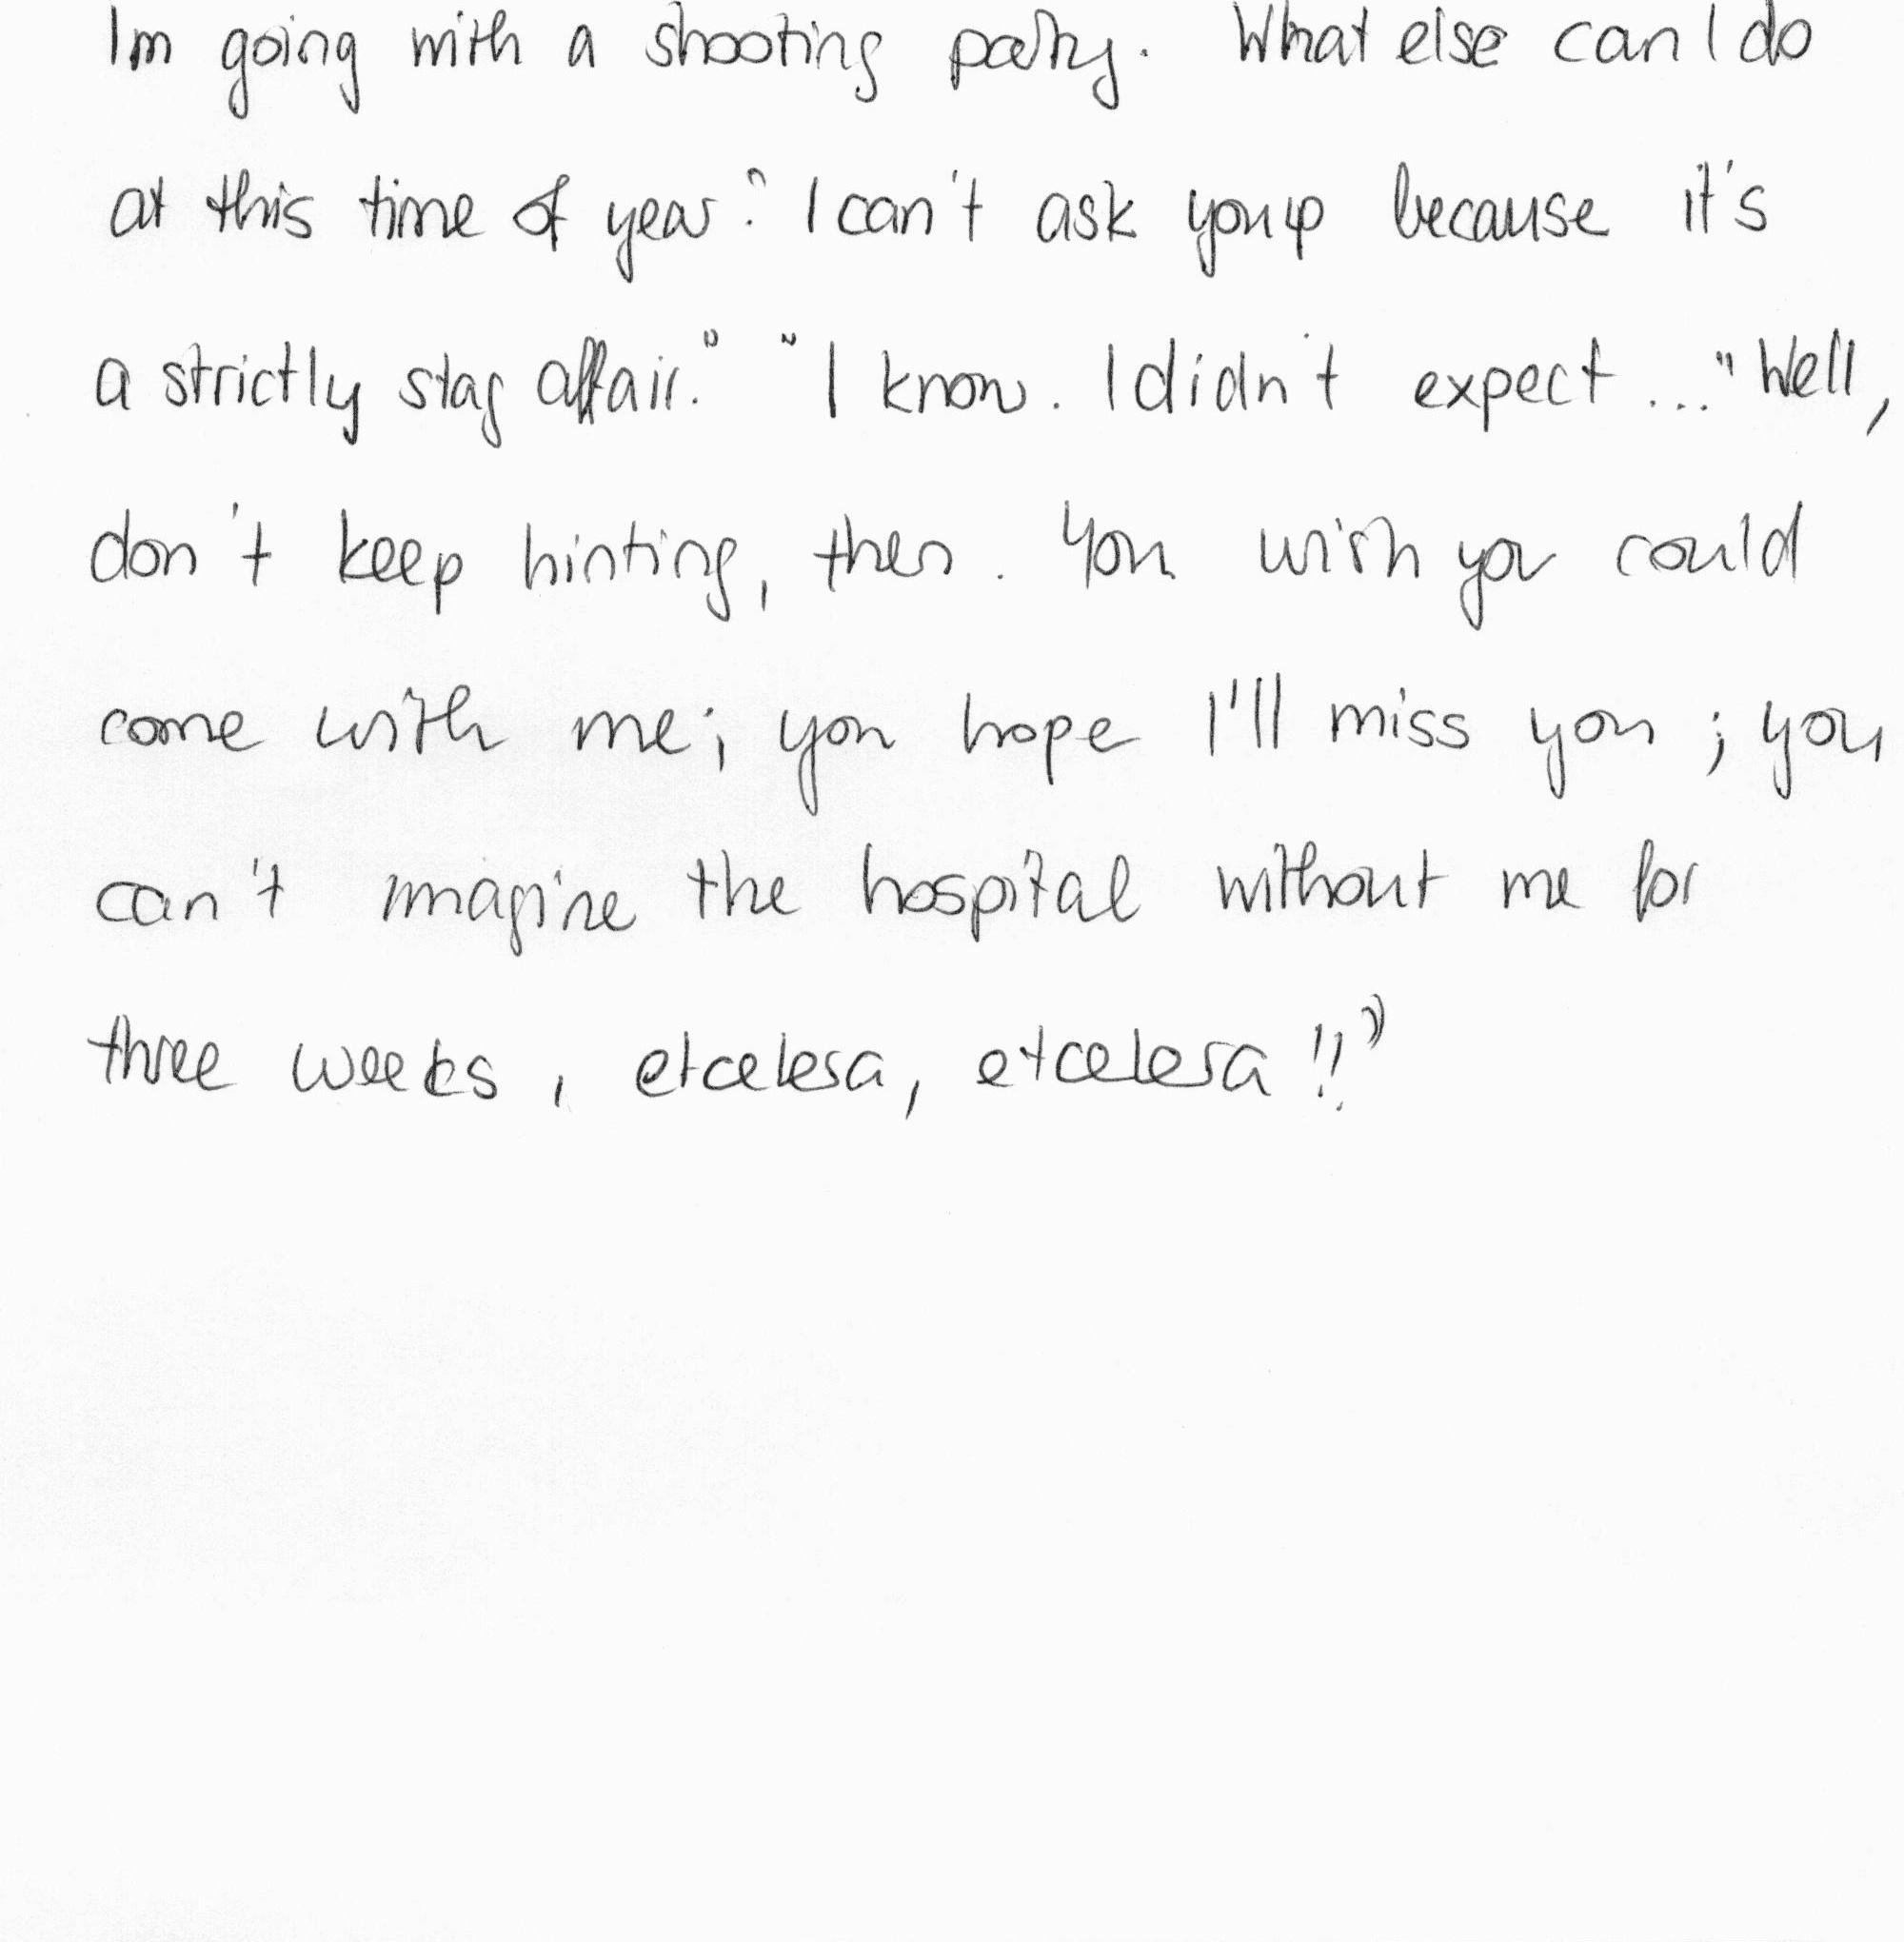 Im going with a shooting party. What else can I do
at this time of year? I can't ask you up because it's
a strictly stag affair." "I know. I didn't expect ... "Well,
don't keep hinting, then. You wish you could
come with me; you hope I'll miss you; you
can't imagine the hospital without me for
three weeks, etcetera, etcetera!!"